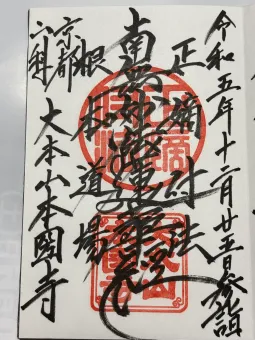 令和五年十二月廿五日参詣
正嫡付法
南無妙法蓮華経
根本道場
京都
山科
大本山本圀寺